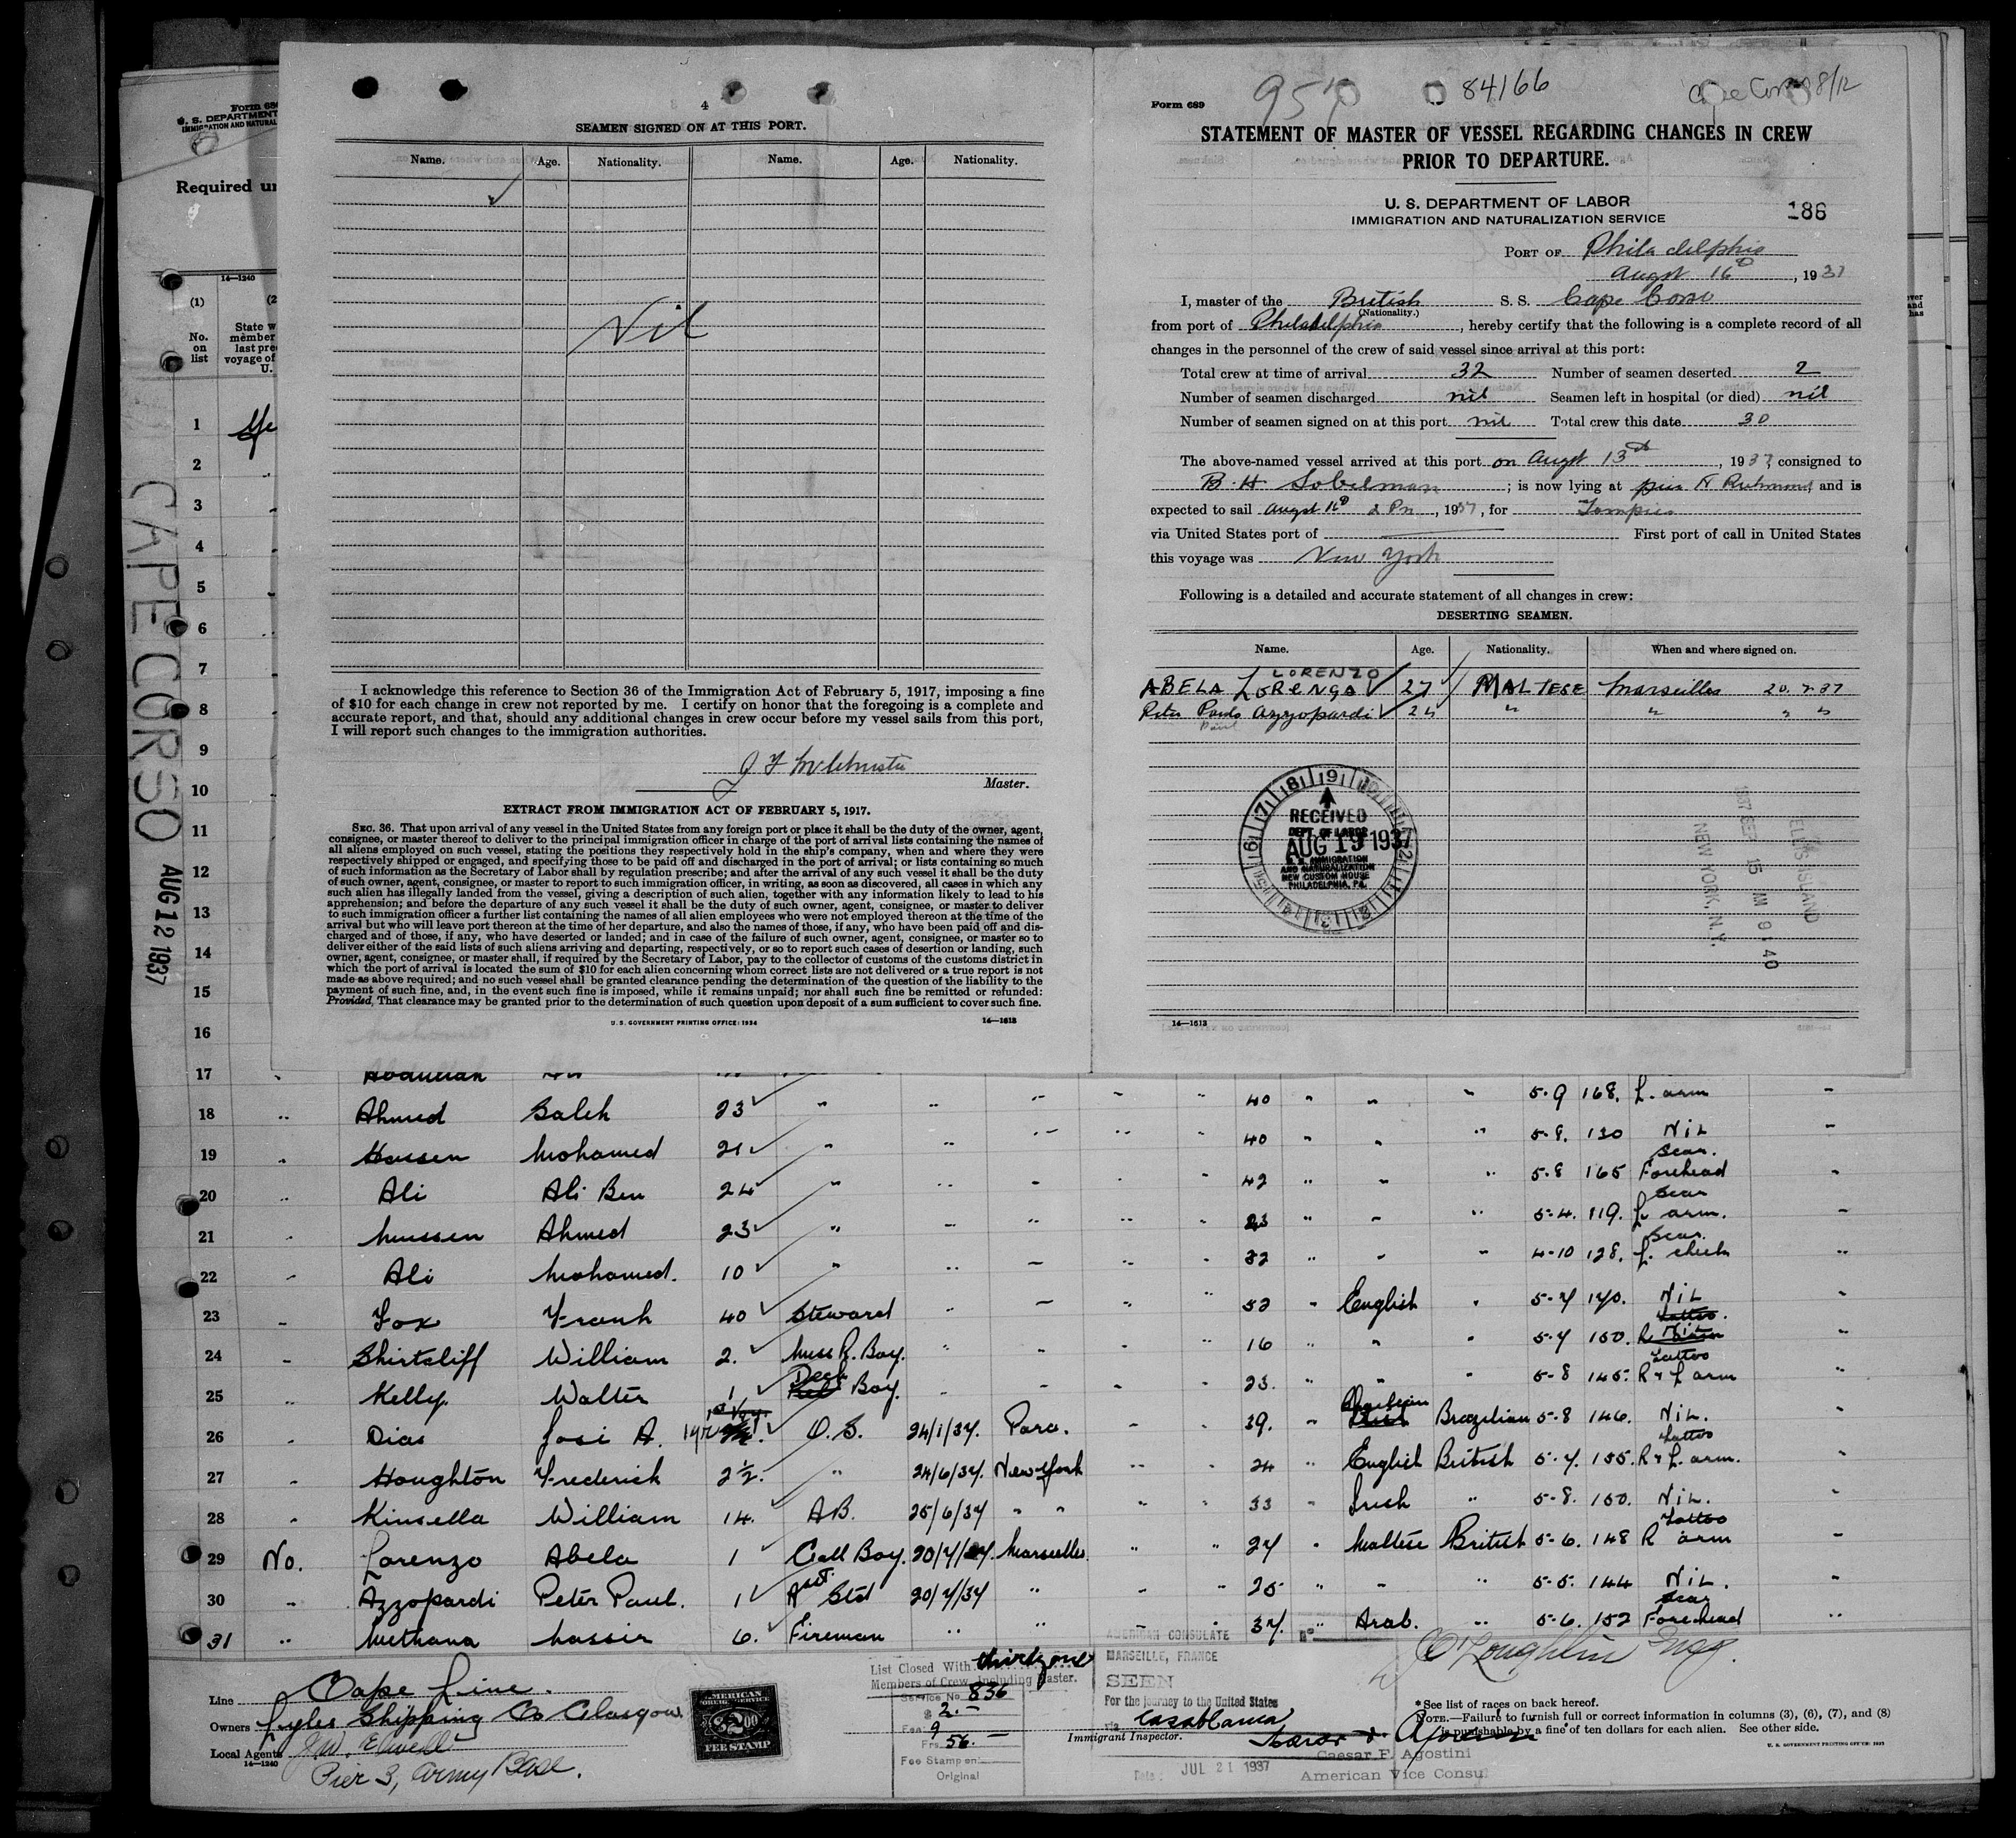 Form 68
U. S. DEPARTMENT
IMMIGRATION AND NATURAL
Required un
14—1240
(1)
(2
No.
on
list
State w
member
last pre
voyage of
U.
1
2
3
4
5
6
7
8
9
10
11
12
13
14
15
16
CAPE CORSO
AUG 12 1937
4
SEAMEN SIGNED ON AT THIS PORT.
Name. Age. Nationality. Name. Age. Nationality.
Nil
I acknowledge this reference to Section 36 of the Immigration Act of February 5, 1917, imposing a fine
of $10 for each change in crew not reported by me. I certify on honor that the foregoing is a complete and
accurate report, and that, should any additional changes in crew occur before my vessel sails from this port,
I will report such changes to the immigration authorities.
Master.
EXTRACT FROM IMMIGRATION ACT OF FEBRUARY 5, 1917.
SEC. 36. That upon arrival of any vessel in the United States from any foreign port or place it shall be the duty of the owner, agent,
consignee, or master thereof to deliver to the principal immigration officer in charge of the port of arrival lists containing the names of
all aliens employed on such vessel, stating the positions they respectively hold in the ship's company, when and where they were
respectively shipped or engaged, and specifying those to be paid off and discharged in the port of arrival; or lists containing so much
of such information as the Secretary of Labor shall by regulation prescribe; and after the arrival of any such vessel it shall be the duty
of such owner, agent, consignee, or master to report to such immigration officer, in writing, as soon as discovered, all cases in which any
such alien has illegally landed from the vessel, giving a description of such alien, together with any information likely to lead to his
apprehension; and before the departure of any such vessel it shall be the duty of such owner, agent, consignee, or master to deliver
to such immigration officer a further list containing the names of all alien employees who were not employed thereon at the time of the
arrival but who will leave port thereon at the time of her departure, and also the names of those, if any, who have been paid off and dis-
charged and of those, if any, who have deserted or landed; and in case of the failure of such owner, agent, consignee, or master so to
deliver either of the said lists of such aliens arriving and departing, respectively, or so to report such cases of desertion or landing, such
owner, agent, consignee, or master shall, if required by the Secretary of Labor, pay to the collector of customs of the customs district in
which the port of arrival is located the sum of $10 for each alien concerning whom correct lists are not delivered or a true report is not
made as above required; and no such vessel shall be granted clearance pending the determination of the question of the liability to the
payment of such fine, and, in the event such fine is imposed, while it remains unpaid; nor shall such fine be remitted or refunded:
Provided, That clearance may be granted prior to the determination of such question upon deposit of a sum sufficient to cover such fine.
U. S. GOVERNMENT PRINTING OFFICE: 1934 14—1613
Form 689
84166
Cape Corso 8/12
STATEMENT OF MASTER OF VESSEL REGARDING CHANGES IN CREW
PRIOR TO DEPARTURE.
U. S. DEPARTMENT OF LABOR
IMMIGRATION AND NATURALIZATION SERVICE
186
PORT OF Philadelphia
Augst 16, 1937
I, master of the British S. S. Cape Corso
(Nationality.)
from port of Philadelphia, hereby certify that the following is a complete record of all
changes in the personnel of the crew of said vessel since arrival at this port:
Total crew at time of arrival 32 Number of seamen deserted 2
Number of seamen discharged nil Seamen left in hospital (or died) nil
Number of seamen signed on at this port nil Total crew this date 30
The above-named vessel arrived at this port on Augst 13th, 1937, consigned to
B. H. Sobelman; is now lying at pier Richmond, and is
expected to sail Augst 16 2 Pm, 1937, for
via United States port of First port of call in United States
this voyage was New York
Following is a detailed and accurate statement of all changes in crew:
DESERTING SEAMEN.
Name. Age. Nationality. When and where signed on.
LORENZO
ABELA LORENGA 27 MALTESE Marseilles 20. 7. 37
Peter Paulo Azzopardi 25 " " " "
Paul
RECEIVED
DEPT. OF LABOR
AUG 19 1937
U. S. IMMIGRATION
AND NATURALIZATION
NEW CUSTOM HOUSE
PHILADELPHIA, PA.
1937 SEP 15 AM 9:40
ELLIS ISLAND
NEW YORK, N. Y.
14—1613
17
18 " Ahmed Saleh 23 " " " " " 40 " " " 5-9 168. L. arm -
19 " Hassen Mohamed 21 " " " " " 40 " " " 5-8. 130 Nil -
Scar.
20 " Ali Ali Ben 24 " " " " " 42 " " " 5-8 165 Forehead -
Scar
21 " Mussen Ahmed 23 " " " " " 23 " " " 5-4. 119. L. arm. -
Scar.
22 " Ali Mohamed. 10 " " " " " 32 " " " 4-10 128. L. cheek "
23 " Fox Frank 40 Steward " " " " 52 " English " 5-7 170. Nil "
24 " Shirtcliff William 2. Mess R. Boy. " " " " 16 " " " 5-7 150. R Nil
Tattoo
25 " Kelly Walter 1 Deck Boy. " " " " 23. " " " 5-8 145. R & L arm "
26 " Dias Josi A. O. S. 24/1/37. Para. " " 39. " Brazilian 5-8 146. Nil. "
Tattoo
27 " Houghton Frederick 2½. " 24/6/37. New York " " 24 " English British 5-7. 155. R & L. arm. "
28 " Kinsella William 14. A.B. 25/6/37 " " " " 33 " Irish " 5-8. 150. Nil. "
Tattoo
29 No. Lorenzo Abela 1 Call Boy. 20/7/37. Marseilles. " " 27 " Maltese British 5-6. 148 R arm "
30 " Azzopardi Peter Paul. 1 Asst. Std 20/7/37 " " " 25 " " " 5-5. 144 Nil. "
Scar
31 " Muthana Nassir 6. Fireman " " " " 37. " Arab. " 5-6. 152 Forehead "
Line Cape Line.
Owners Lyles Shipping Co Glasgow
Local Agents J.W. Elwell
14—1240
Pier 3, Army Base.
AMERICAN
FOREIGN SERVICE
$2.00
FEE STAMP
List Closed With thirty one
Members of Crew Including Master.
Service No. 836
$ 2.—
Fee
Frs 56.—
Fee Stamp on
Original
AMERICAN CONSULATE
MARSEILLE, FRANCE
SEEN
For the journey to the United States
via Casablanca
Immigrant Inspector.
Caesar F. Agostini
American Vice Consul
Date: JUL 21 1937
* See list of races on back hereof.
NOTE.—Failure to furnish full or correct information in columns (3), (6), (7), and (8)
is punishable by a fine of ten dollars for each alien. See other side.
U. S. GOVERNMENT PRINTING OFFICE: 1937